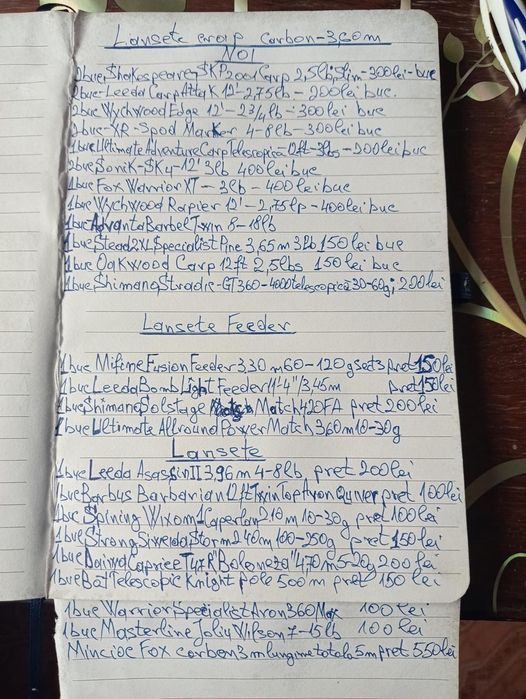 Lansete crap carbon-3,60m
NOI
2buc Shakespeare SKP 2001 Carp 2,5lb; Slim-300lei-buc
2buc-Leeda Carp Attak 12'-2,75lb-200lei buc.
2buc Wychwood Edge 12'-2 3/4 lb-300lei buc
2buc-XR-Spod Marker 4-8lb-300lei buc
1buc Ultimate Adventure Carp Telescopica-12ft-3lbs-200lei buc
2buc Sonik-SK4-12' 3lb 400lei buc
1buc Fox Warrior XT-3lb-400lei buc
1buc Wychwood Rapier 12'-2,75lp-400lei buc
1buc Advanta Barbel Twin 8-18lb
1buc Stead 2XL Specialist Pine 3,65m 3lb 150lei buc
1buc Oakwood Carp 12ft 2,5lbs 150lei buc
1buc Shimano Stradic-GT360-4000 telescopica 30-60g; 200lei
Lansete Feeder
1buc Mifine Fusion Feeder 3,30m 60-120g set3 pret 150lei
1buc Leeda Bomb Light Feeder 11'4"/3,45m pret 150lei
1buc Shimano Solstage Match 420FA pret 200lei
1buc Ultimate Allround Power Match 360m 10-30g
Lansete
1buc Leeda Asassin II 3,96m 4-8lb pret 200lei
1buc Barbus Barbarian 12ft Twin Top pret 100lei
1buc Spining Wixom-1 Caperlan 210m 10-30g pret 100lei
1buc Strong Storm 240m 100-250g pret 150lei
1buc Daiwa Caprice "Boloneza" 470m 5-20g 200lei
1buc Bat Telescopic Knight pole 500m pret 150lei
1buc Warrior Specialist Avon 360 Max 100lei
1buc Masterline Wilson 7-15lb 100lei
Mincioc Fox carbon 3m lungime totala 5m pret 550lei